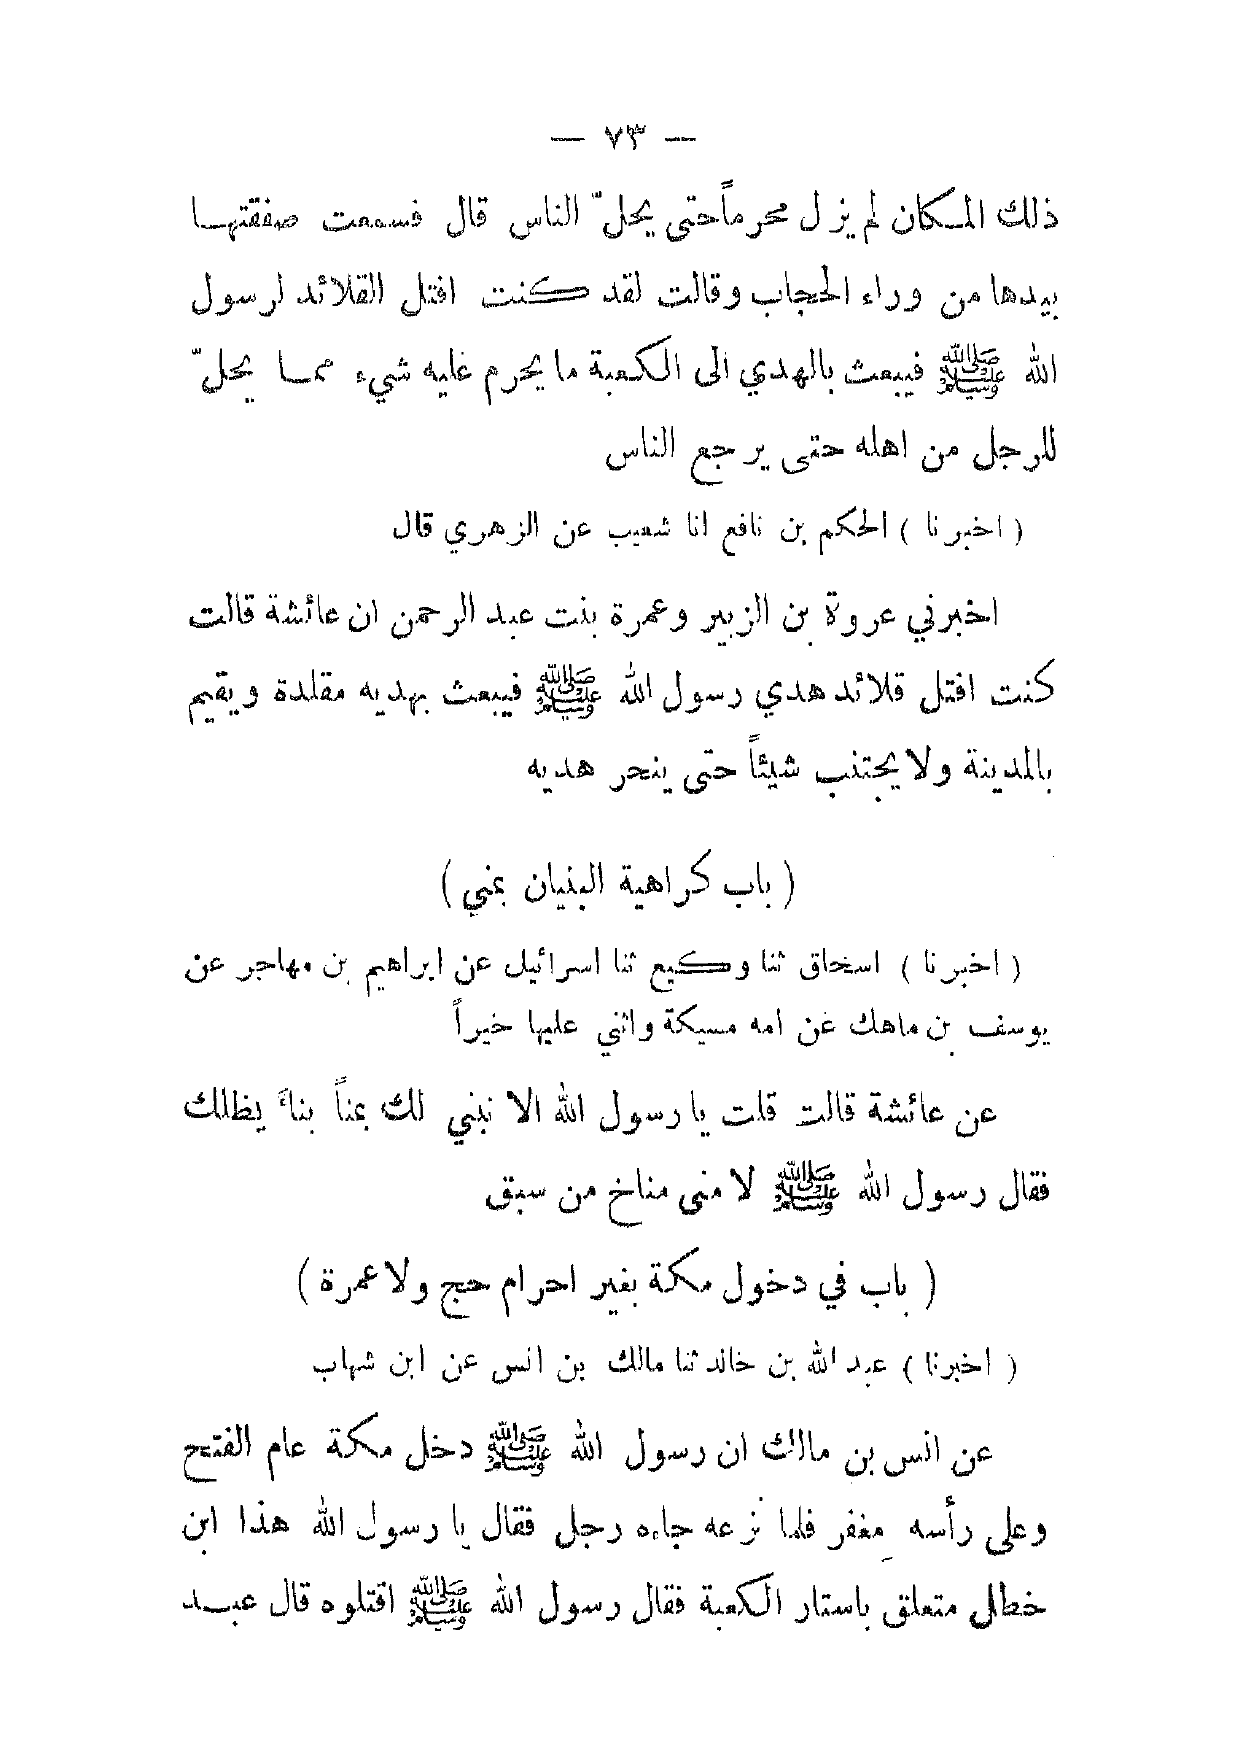 — ٧٣ —
ذلك المكان لم يزل محرماً حتى يحلّ الناس قال فسمعت صفقتهـا
بيدها من وراء الحجاب وقالت لقد كنت افتل القلائد لرسول
الله ﷺ فيبعث بالهدي الى الكعبة ما يحرم عليه شيء ممـا يحلّ
للرجل من اهله حتى يرجع الناس
( اخبرنا ) الحكم بن نافع انا شعيب عن الزهري قال
اخبرني عروة بن الزبير وعمرة بنت عبد الرحمن ان عائشة قالت
كنت افتل قلائد هدي رسول الله ﷺ فيبعث بهديه مقلدة ويقيم
بالمدينة ولا يجتنب شيئاً حتى ينحر هديه
( باب كراهية البنيان بمنى )
( اخبرنا ) اسحاق ثنا وكيع ثنا اسرائيل عن ابراهيم بن مهاجر عن
يوسف بن ماهك عن امه مسيكة واثني عليها خيراً
عن عائشة قالت قلت يا رسول الله الا نبني لك بمناً بناءً يظلك
فقال رسول الله ﷺ لا منى مناخ من سبق
( باب في دخول مكة بغير احرام حج ولا عمرة )
( اخبرنا ) عبد الله بن خالد ثنا مالك بن انس عن ابن شهاب
عن انس بن مالك ان رسول الله ﷺ دخل مكة عام الفتح
وعلى رأسه مغفر فلما نزعه جاءه رجل فقال يا رسول الله هذا ابن
خطال متعلق باستار الكعبة فقال رسول الله ﷺ اقتلوه قال عبـد